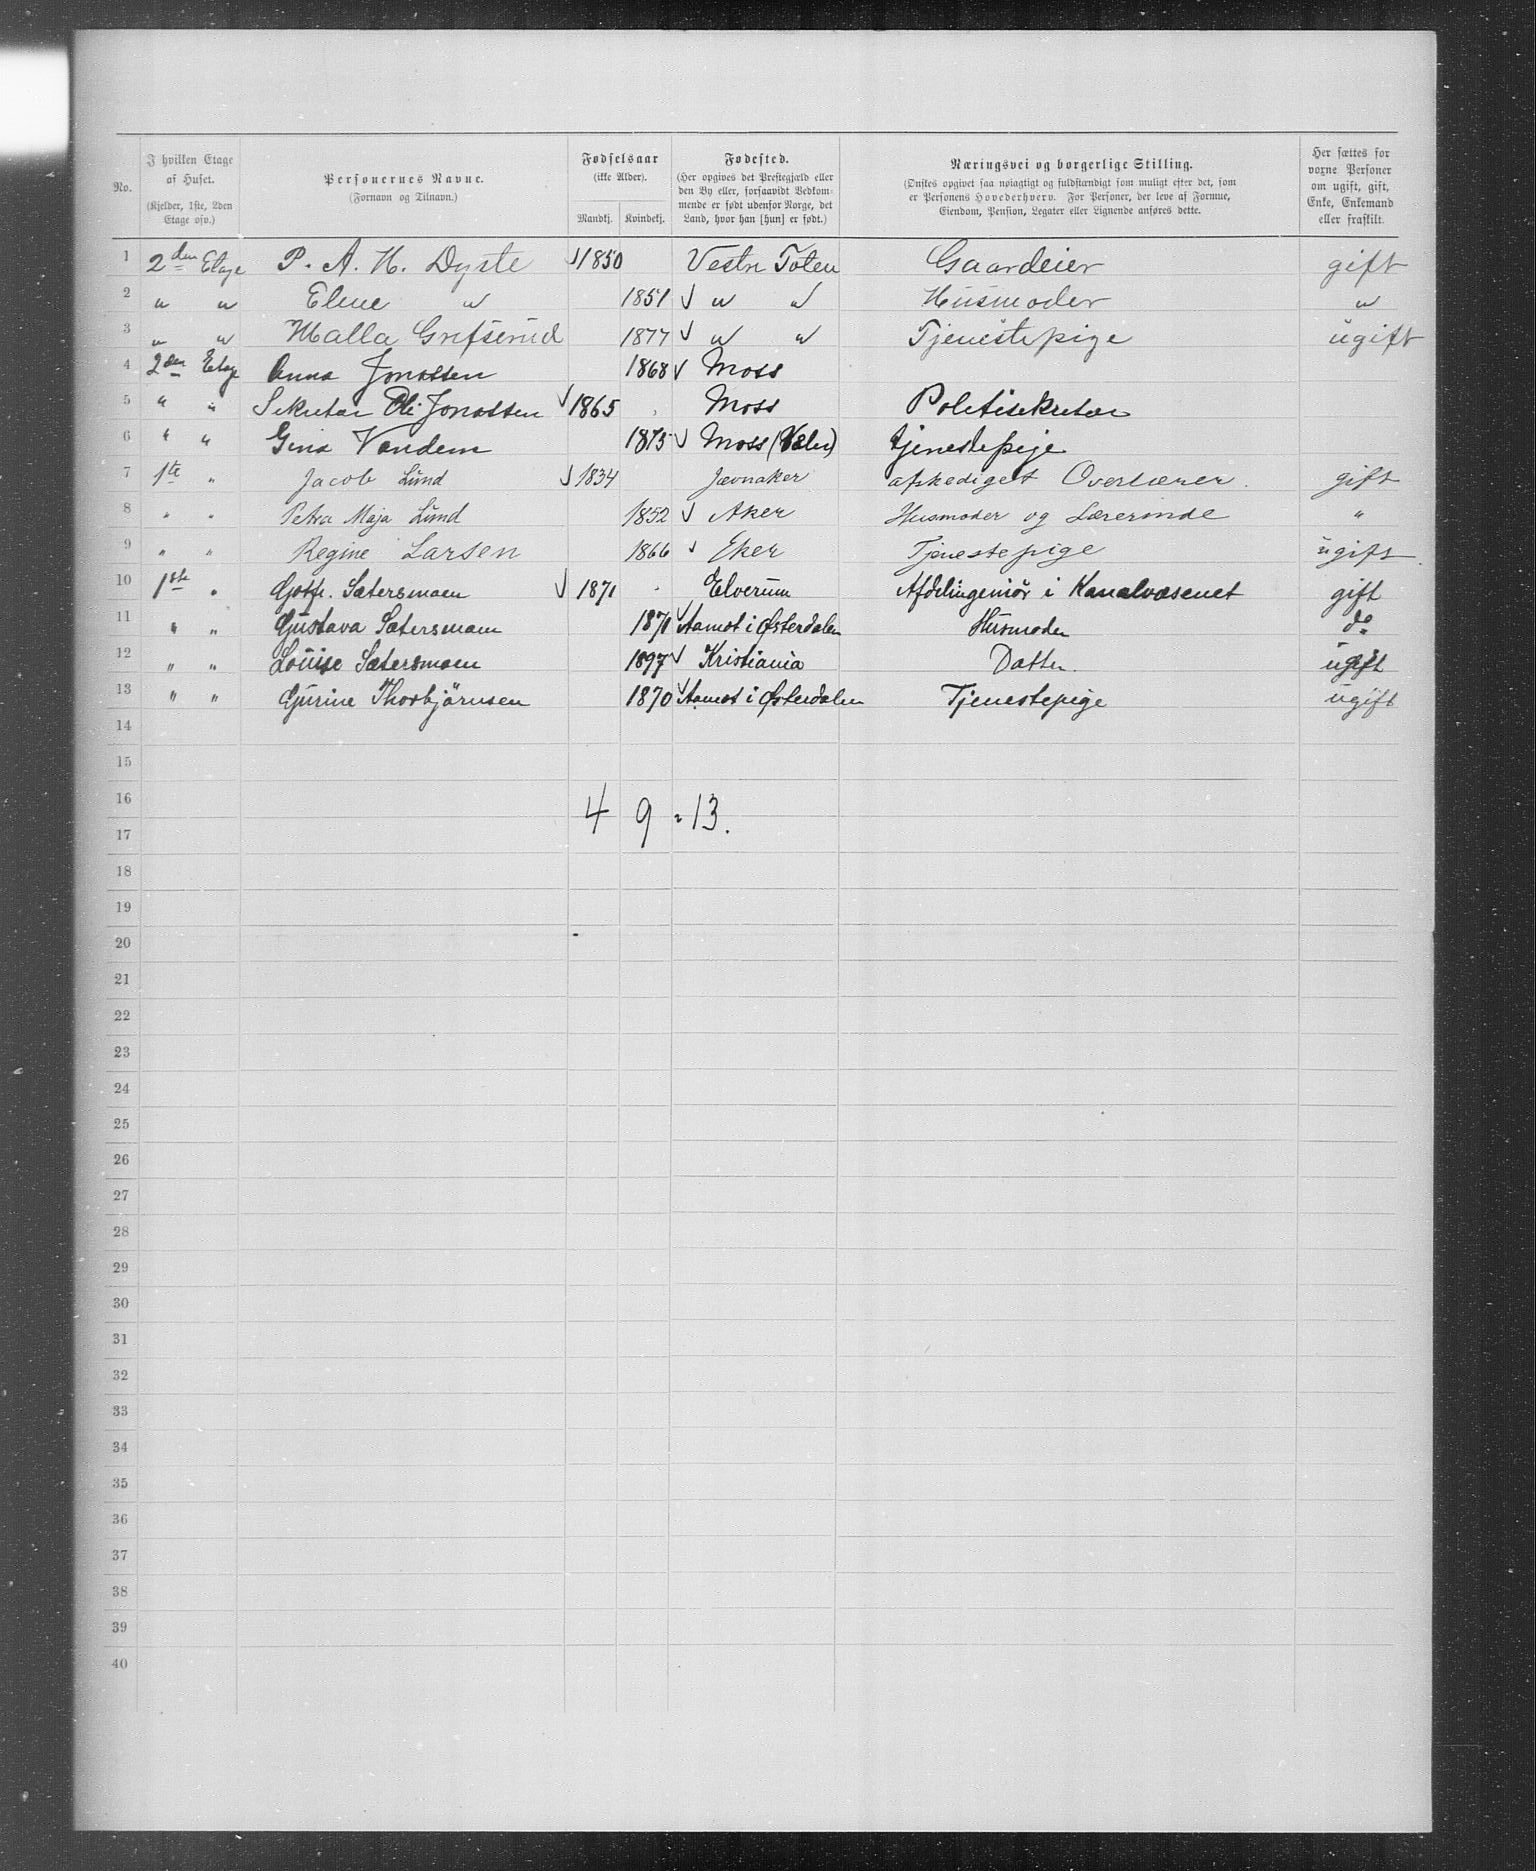 No. | I hvilken Etage af Huset. (Kjelder, 1ste, 2den Etage osv.) | Personernes Navne. (Fornavn og Tilnavn.) | Fødselsaar (ikke Alder). Mandkj. Kvindekj. | Fødested. (Her opgives det Prestegjæld eller den By eller, forsaavidt Vedkommende er født udenfor Norge, det Land, hvor han [hun] er født.) | Næringsvei og borgerlige Stilling. (Ønskes opgivet saa nøiagtigt og fuldstændigt som muligt efter det, som er Personens Hovederhverv. For Personer, der leve af Formue, Eiendom, Pension, Legater eller Lignende anføres dette.) | Her sættes for voxne Personer om ugift, gift, Enke, Enkemand eller fraskilt.
1 2den Etage P. A. H. Dyste √1850 Vestre Toten Gaardeier gift
2 " " Elene " 1851 √ " " Husmoder "
3 " " Malla Grefserud 1877 √ " " Tjenestepige ugift
4 2den Etage Anna Jonassen 1868 √ Moss
5 " " Sekretær Oli Jonassen √ 1865 Moss Politisekretær
6 " " Gina Vandem 1875 √ Moss (Valer) tjenestepige
7 1ste " Jacob Lund √ 1834 Jævnaker afskediget Overlærer. gift
8 " " Petra Maja Lund 1852 √ Aker Husmoder og Lærerinde "
9 " " Regine Larsen 1866 √ Eker Tjenestepige ugift.
10 1ste " Gotfr. Sætersmoen √ 1871 Elverum Afdelingeniør i Kanalvæsenet gift
11 " " Gustava Sætersmoen 1871 √ Aamot i Østerdalen Husmoder do
12 " " Louise Sætersmoen 1897 √ Kristiania Datter. ugift
13 " " Gurine Thorbjørnsen 1870 √ Aamot i Østerdalen Tjenestepige ugift
14
15
16
4 9 = 13.
17
18
19
20
21
22
23
24
25
26
27
28
29
30
31
32
33
34
35
36
37
38
39
40